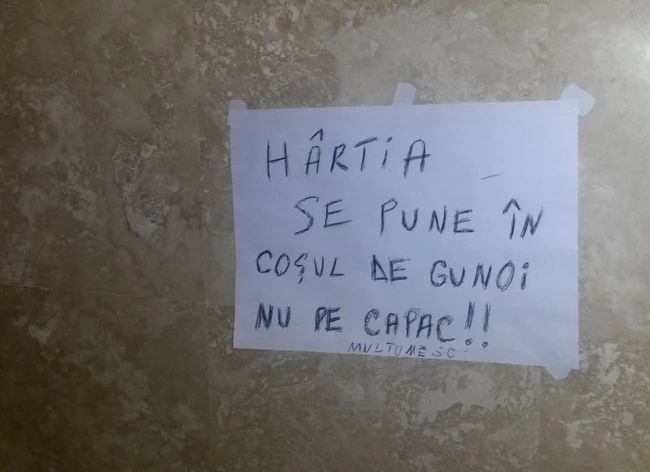 HÂRTiA
SE PUNE ÎN
COȘUL DE GUNOi
NU PE CAPAC!!
MULTUMESC!